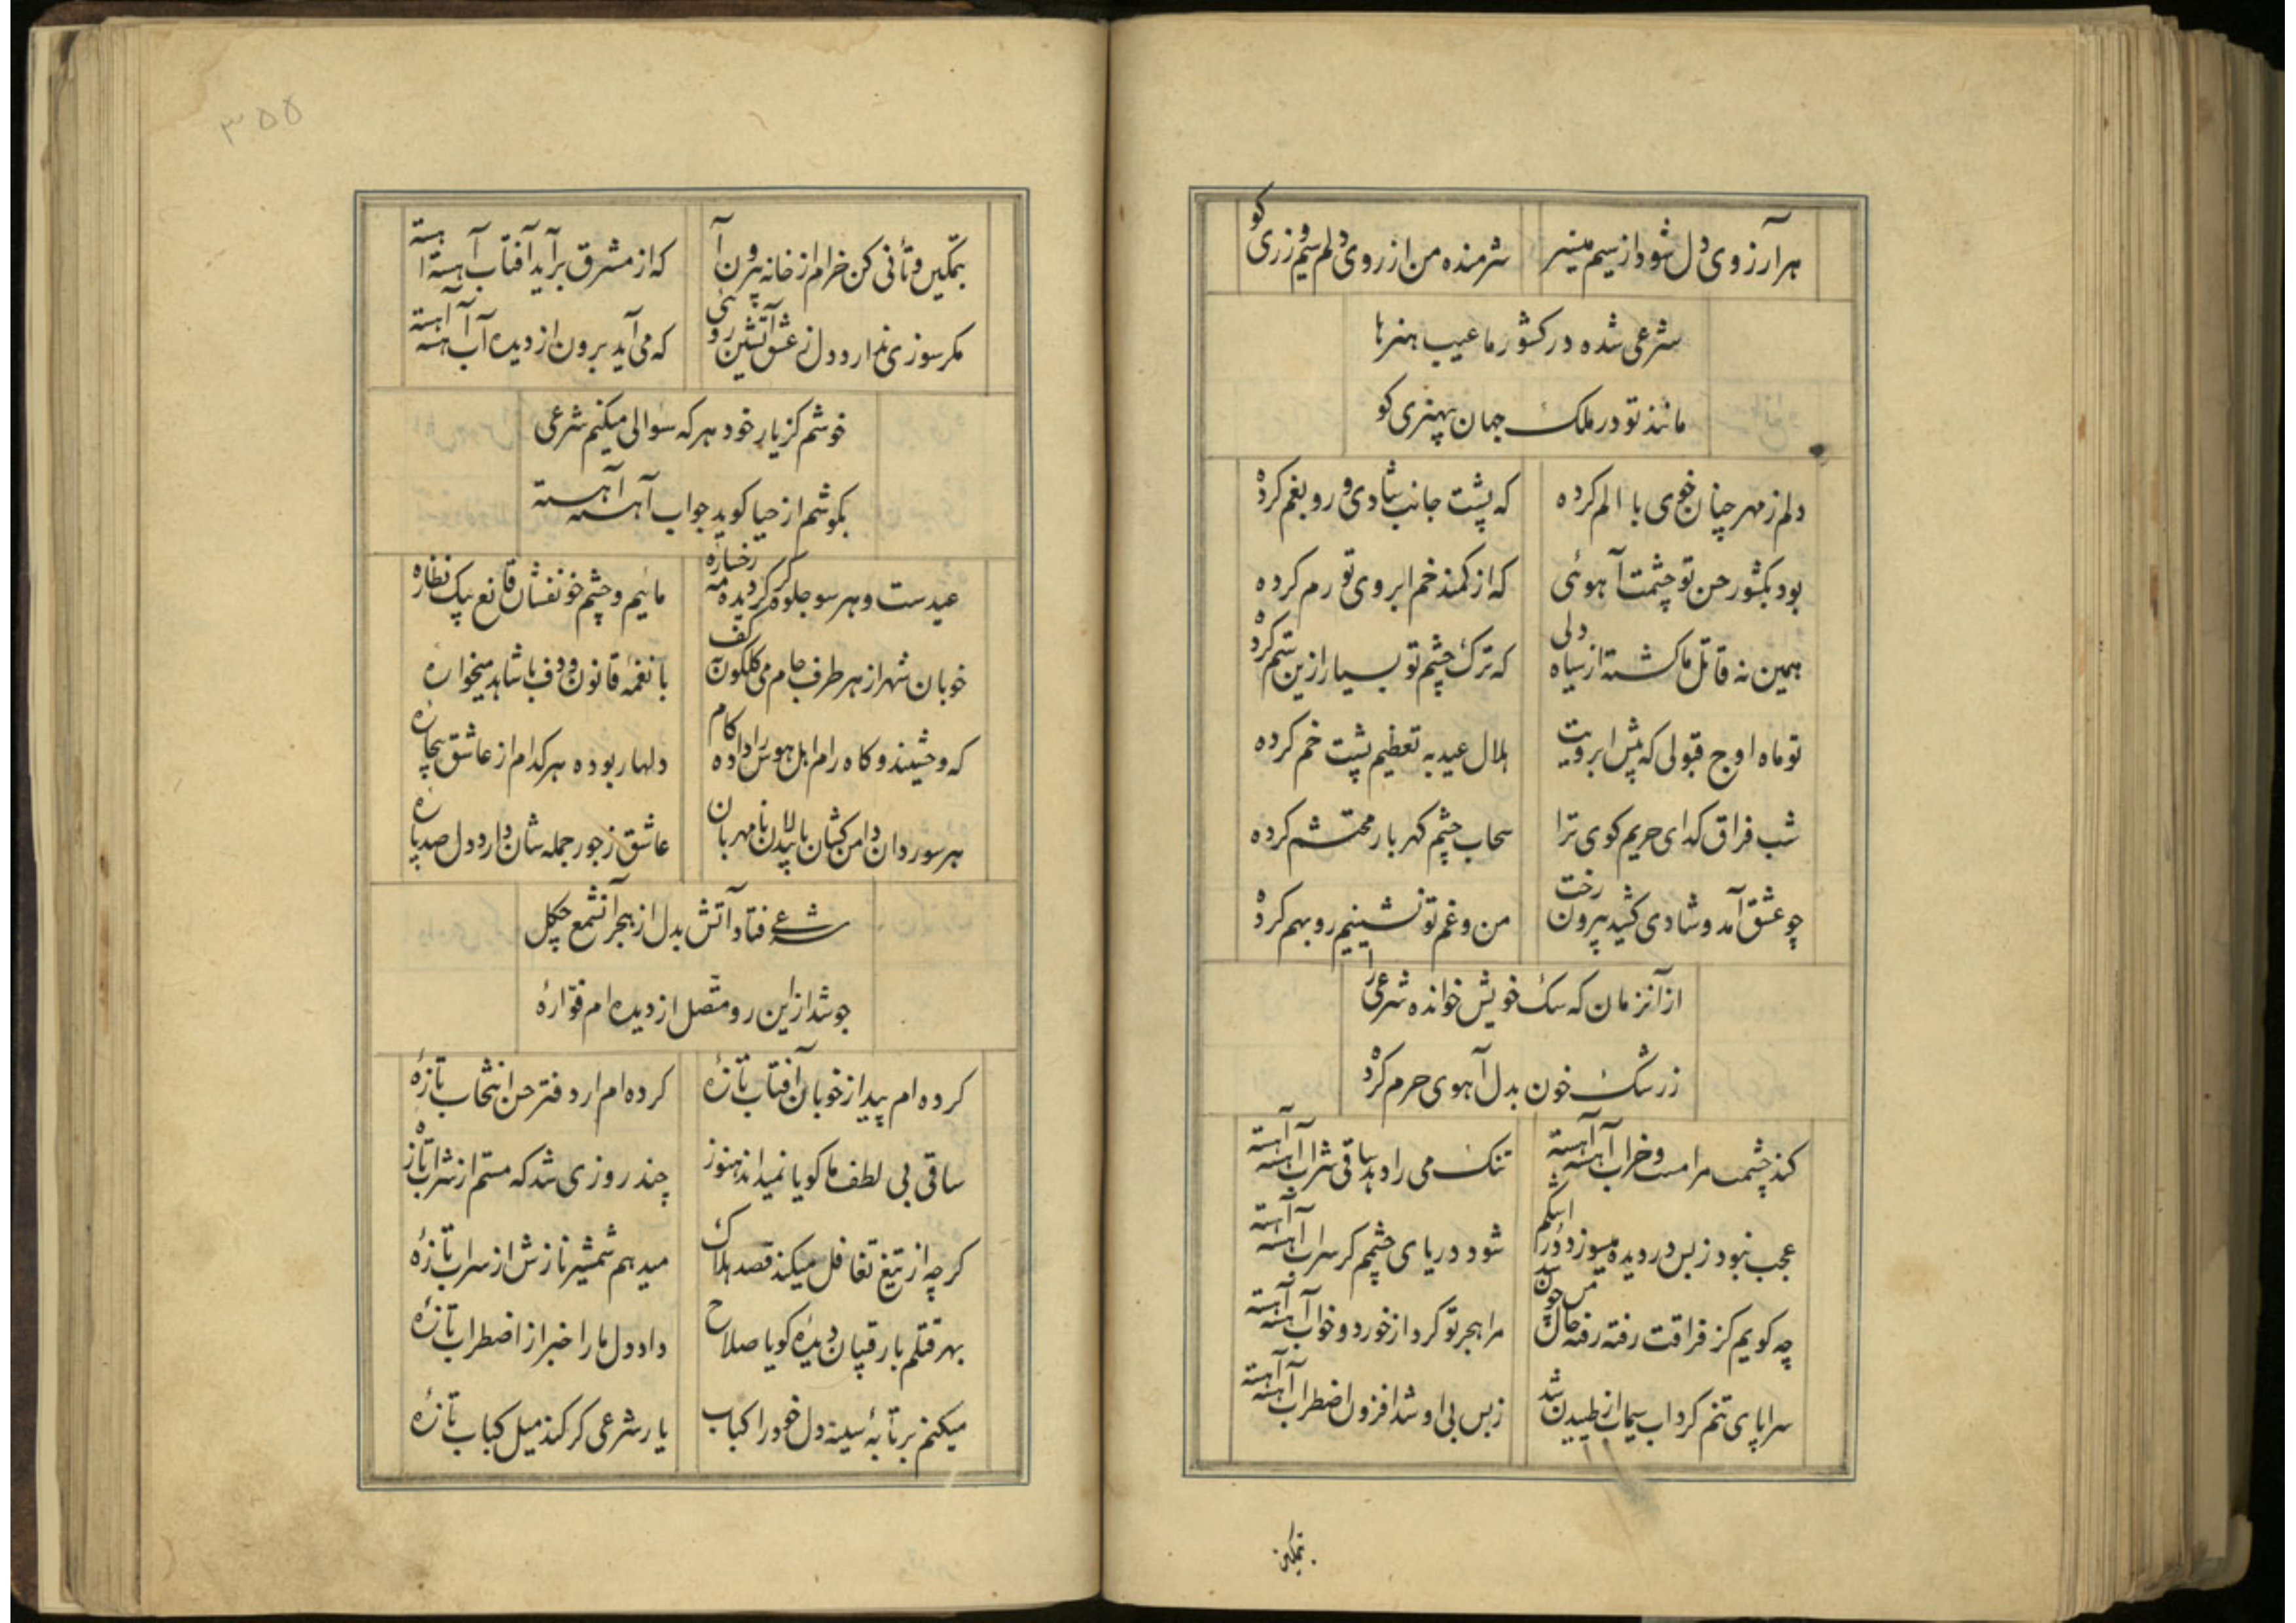 هر آرزوی دل شود از سیم میسر
شرمنده من از روی دلم سیم و زری کو
شرعی شده در کشور ما عیب هنرها
مانند تو در ملک جهان بهنری کو
دلم ز مهر چنان خوی با الم کرده
که پشت جانب شادی و رو بغم کرده
بود بکشور حسن تو چشمت آهوئی
که از کمند خم ابروی تو رم کرده
همین نه قاتل ما کشته از سیاه دلی
که ترک چشم تو بسیار ازین ستم کرده
تو ماه اوج قبولی که پیش ابرویت
هلال عید به تعظیم پشت خم کرده
شب فراق کدای حریم کوی ترا
سحاب چشم کهربار محتشم کرده
چو عشق آمد و شادی کشید بیرون رخت
من و غم تو نشینیم رو بهم کرده
از آنزمان که سک خویش خوانده شرعی را
ز رشک خون بدل آهوی حرم کرده
کند چشمت مرا مست و خراب آهسته آهسته
تنک می را دهد ساقی شراب آهسته آهسته
عجب نبود ز بس در دیده میسوزد اشکم
شود دریای چشمم کر سراب آهسته آهسته
چه کویم کز فراقت رفته رفته حال من چون شد
مرا هجر تو کرد از خورد و خواب آهسته آهسته
سراپای تنم کرداب سیماب از طپیدن شد
ز بس بی او شد افزون اضطراب آهسته آهسته
بتمکین
۳۵۵
بتمکین و تأنی کن خرام از خانه بیرون آ
که از مشرق برآید آفتاب آهسته آهسته
مکر سوزی ندارد دل ز عشق آتشین روئی
که می آید برون از دیده آب آهسته آهسته
خوشم کز یار خود هرکه سؤالی میکنم شرعی
بکوشم از حیا کوید جواب آهسته آهسته
عیدست و هر سو جلوه کر کردیده مه رخساره
مائیم و چشم خونفشان قانع بیک نظاره
خوبان شهر از هر طرف جام می کلکون بکف
با نغمهٔ قانون و دف با شاهد میخواره
که وحشیند و کاه رام اهل هوس را داده کام
دلها ربوده هرکدام از عاشق بیچاره
هر سو روان دامن کشان بالابلندان نامهربان
عاشق ز جور جمله شان دارد دل صدپاره
شرعی فتاد آتش بدل از هجر آنشمع چکل
جوشد ازین رو متصل از دیده ام فوّارهٔ
کرده ام پیدا ز خوبان آفتاب تازهٔ
کرده ام از دفتر حسن انتخاب تازهٔ
ساقی بی لطف ما کویا نمیداند هنوز
چند روزی شد که مستم از شراب تازهٔ
کرچه از تیغ تغافل میکند قصد هلاک
میدهم شمشیر نازش از سر آب تازهٔ
بهر قتلم با رقیبان دیده کویا صلاح
داد دل ما را خبر از اضطراب تازهٔ
میکنم بر تابهٔ سینه دل خود را کباب
یار شرعی کر کند میل کباب تازهٔ